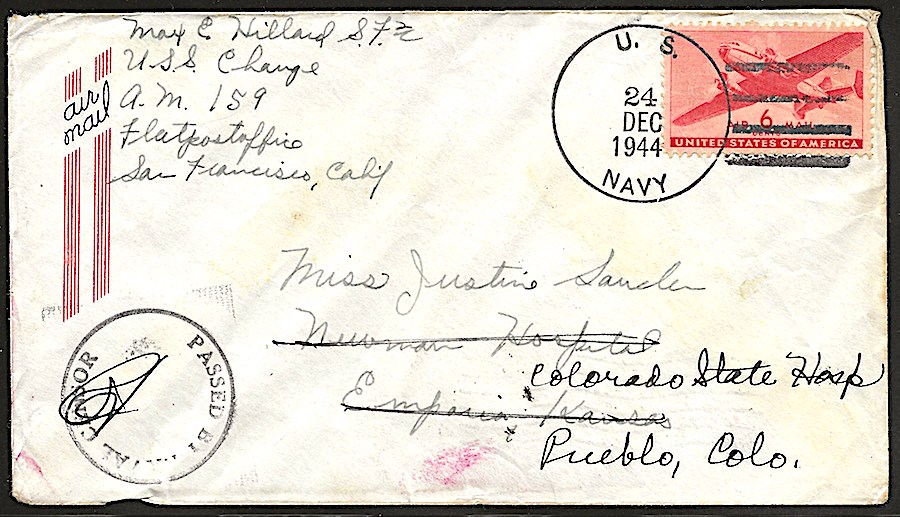 Max E Hillard S.F.2
U.S.S. Change
A.M. 159
Fleetpostoffice
San Francisco, Calif
air
mail
U. S.
24
DEC
1944
NAVY
AIR 6 MAIL
CENTS
UNITED STATES OF AMERICA
Miss Justine
Newman Hospital
Colorado State Hosp
Emporia Kansas
Pueblo, Colo.
PASSED BY NAVAL CENSOR